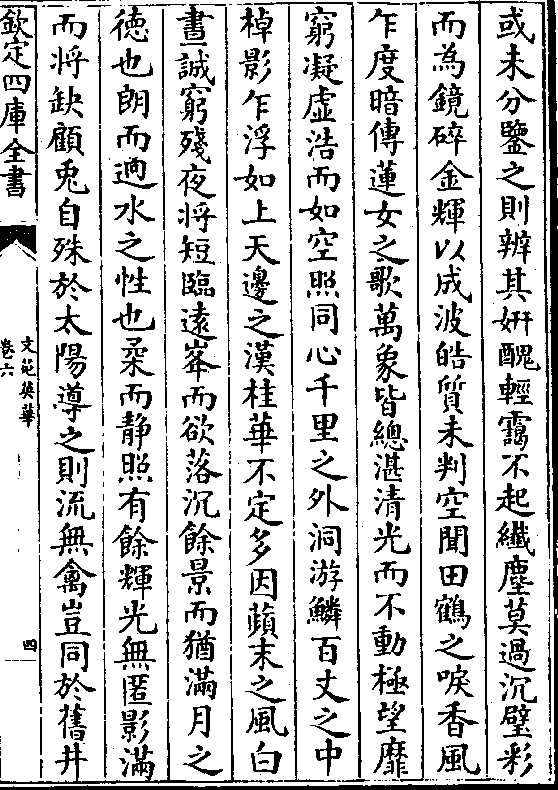 或未分鑒之則辨其妍醜輕靄不起纖塵莫過沉璧彩
而為鏡碎金輝以成波皓質未判空聞田鶴之唳香風
乍度暗傳蓮女之歌萬象皆總湛清光而不動極望靡
窮凝虛浩而如空照同心千里之外洞游鱗百丈之中
棹影乍浮如上天邊之漢桂華不定多因蘋末之風白
晝誠窮殘夜将短臨遠峯而欲落沉餘景而猶滿月之
徳也朗而逈水之性也柔而靜照有餘輝光無匿影滿
而将缺顧兎自殊於太陽導之則流無禽豈同於舊井
欽定四庫全書
文苑英華
卷六
四